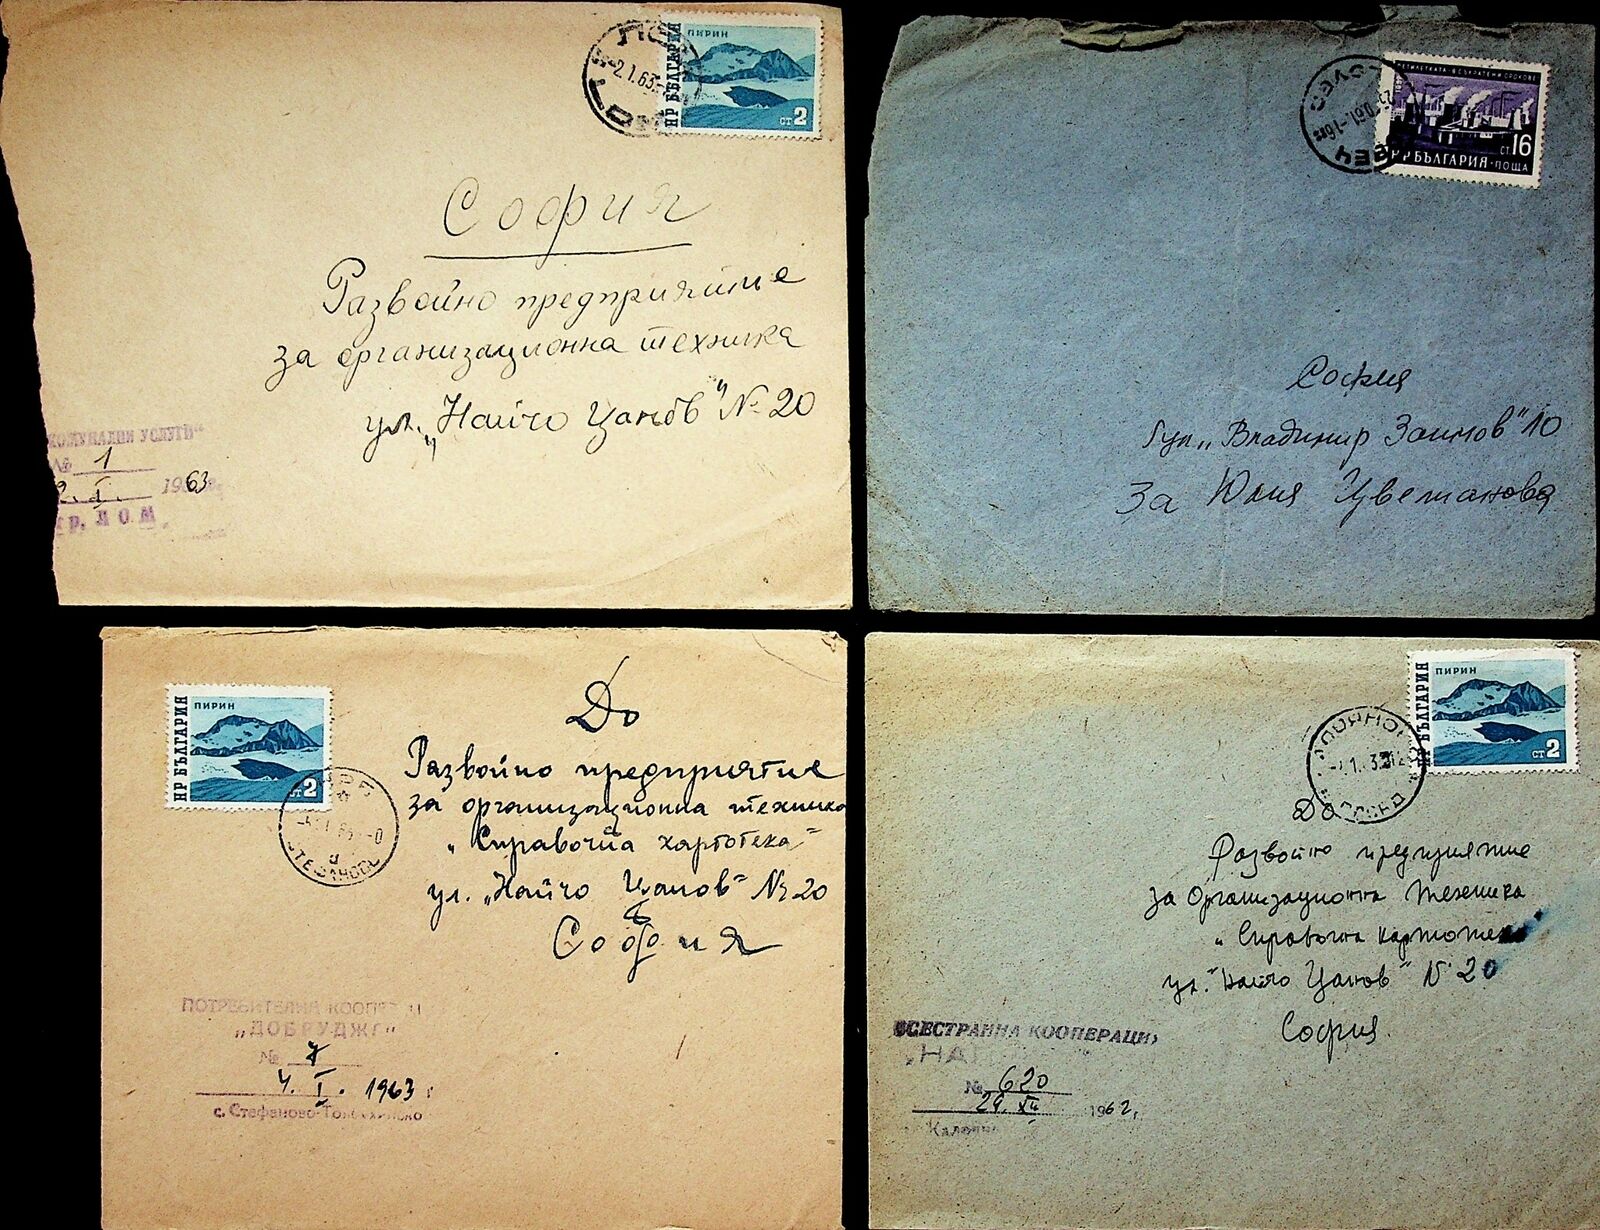 ПИРИН
НР БЪЛГАРИЯ
СТ 2
2.1.63
София
Развойно предприятие
за организационна техника
ул. „Найчо Цанов" № 20
КОМУНАЛНИ УСЛУГИ"
№ 1
2. I. 1963
гр. ЛОМ
ПЕТИЛЕТКАТА В СЪКРАТЕНИ СРОКОВЕ
СТ. 16
НР БЪЛГАРИЯ · ПОЩА
София
бул „Владимир Заимов" 10
За Юлия Цветанова
ПИРИН
НР БЪЛГАРИЯ
СТ 2
До
Развойно предприятие
за организационна техника
„Справочна картотека"
ул. „Найчо Цанов" № 20
София
ПОТРЕБИТЕЛНА
„ДОБРУДЖА"
№ 7
4. I. 1963 г
с. Стефаново
ПИРИН
НР БЪЛГАРИЯ
СТ 2
До
Развойно предприятие
за Организационна Техника
„Справочна картотека
ул. "Найчо Цанов" № 20
София
ВСЕСТРАННА КООПЕРАЦИЯ
№ 620
29. XII 1962 г.